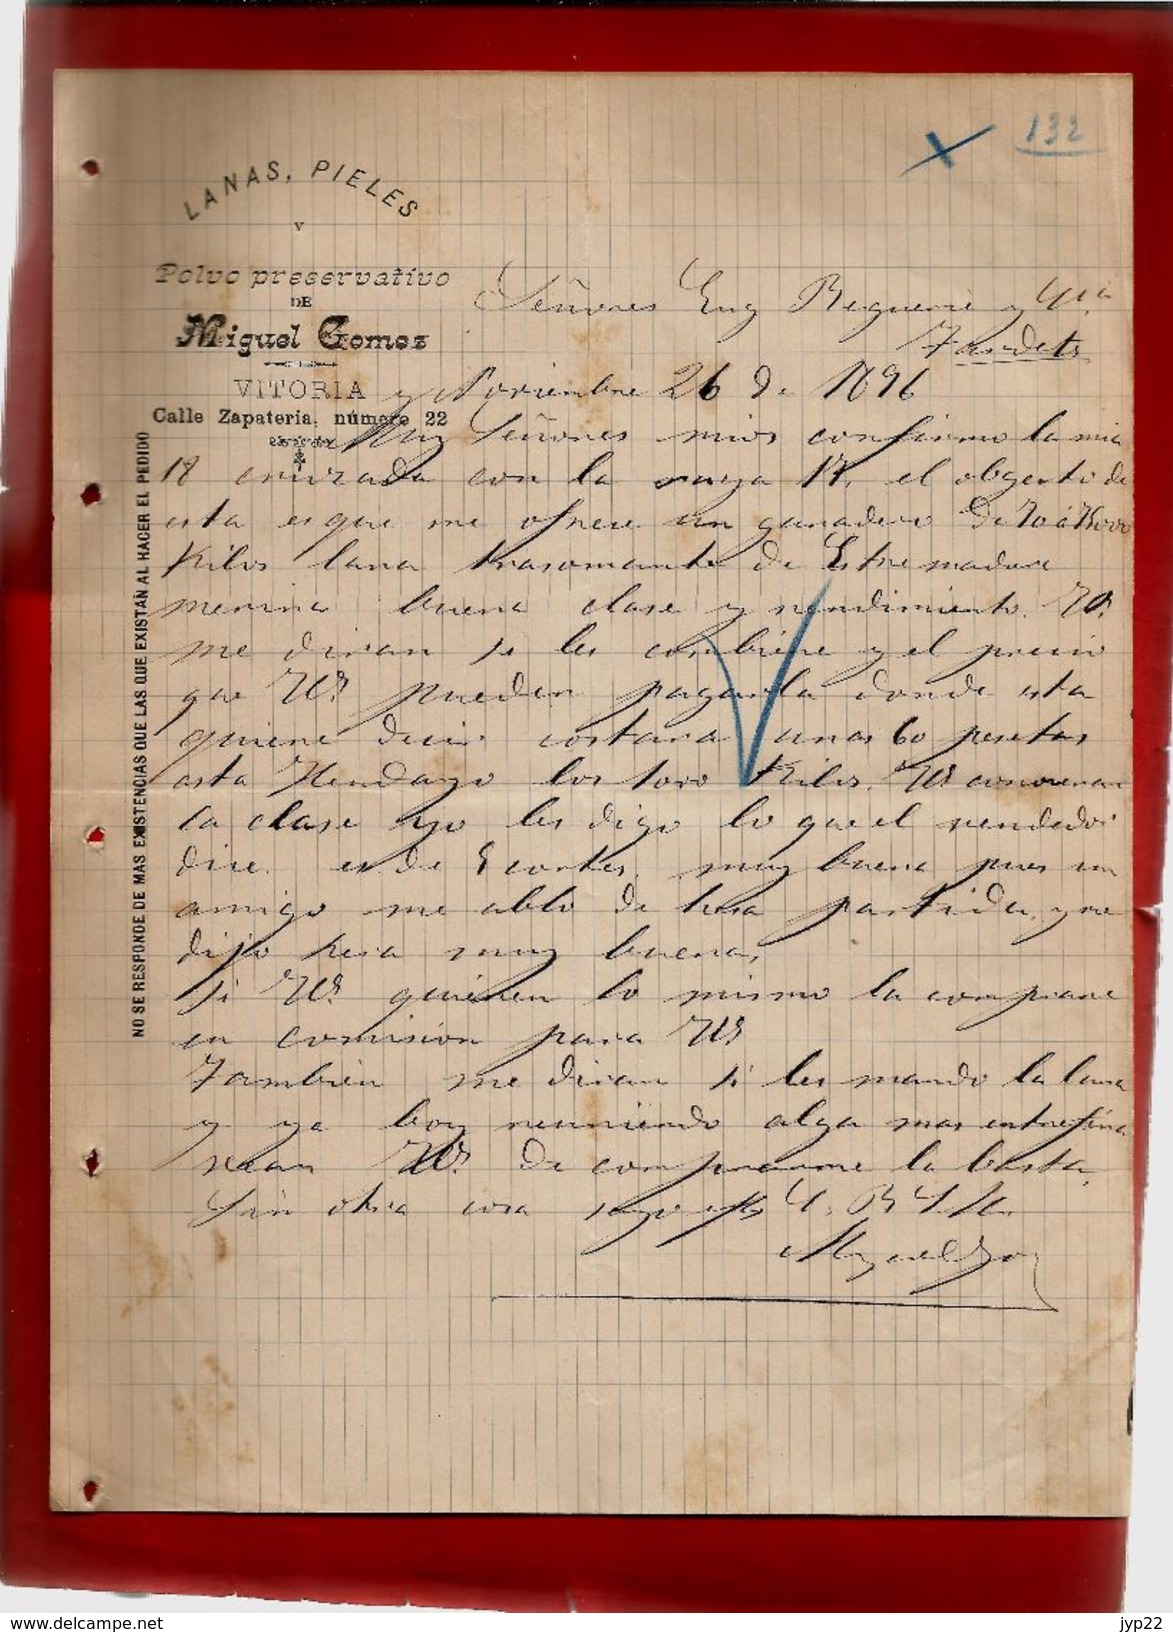 132
LANAS, PIELES
Y
Polvo preservativo
DE
Miguel Gomez
VITORIA
Calle Zapateria, número 22
NO SE RESPONDE DE MAS EXISTENCIAS QUE LAS QUE EXISTAN AL HACER EL PEDIDO
Señores Eug Beguerie y Cia
Tardets
y Noviembre 26 de 1896
Muy Señores mios confirmo la mia
18 cruzada con la suya 17. el obgerto de
esta es que me ofrece un ganadero de
Kilos lana trasomante de Estremadura
merina buena clase y rendimiento. Vds
me diran si les combiene y el precio
que Vds pueden pagarla donde esta
quiere decir costara unas 60 pesetas
asta Hendayo los 1000 Kilos. Vds conoceran
la clase yo les digo lo que el vendedor
dice. es de 8 cortes. muy buena pues un
amigo me ablo de hesa partida, y me
dijo hera muy buena,
si Vds quieren lo mismo la comprare
en comision para Vds
Tambien me diran si les mando la lana
y ya boy reuniendo alga mas entrefina
sean Vds de comprarme la basta,
Sin otra cosa suyo
Miguel Gomez
www.delcampe.net
jyp22